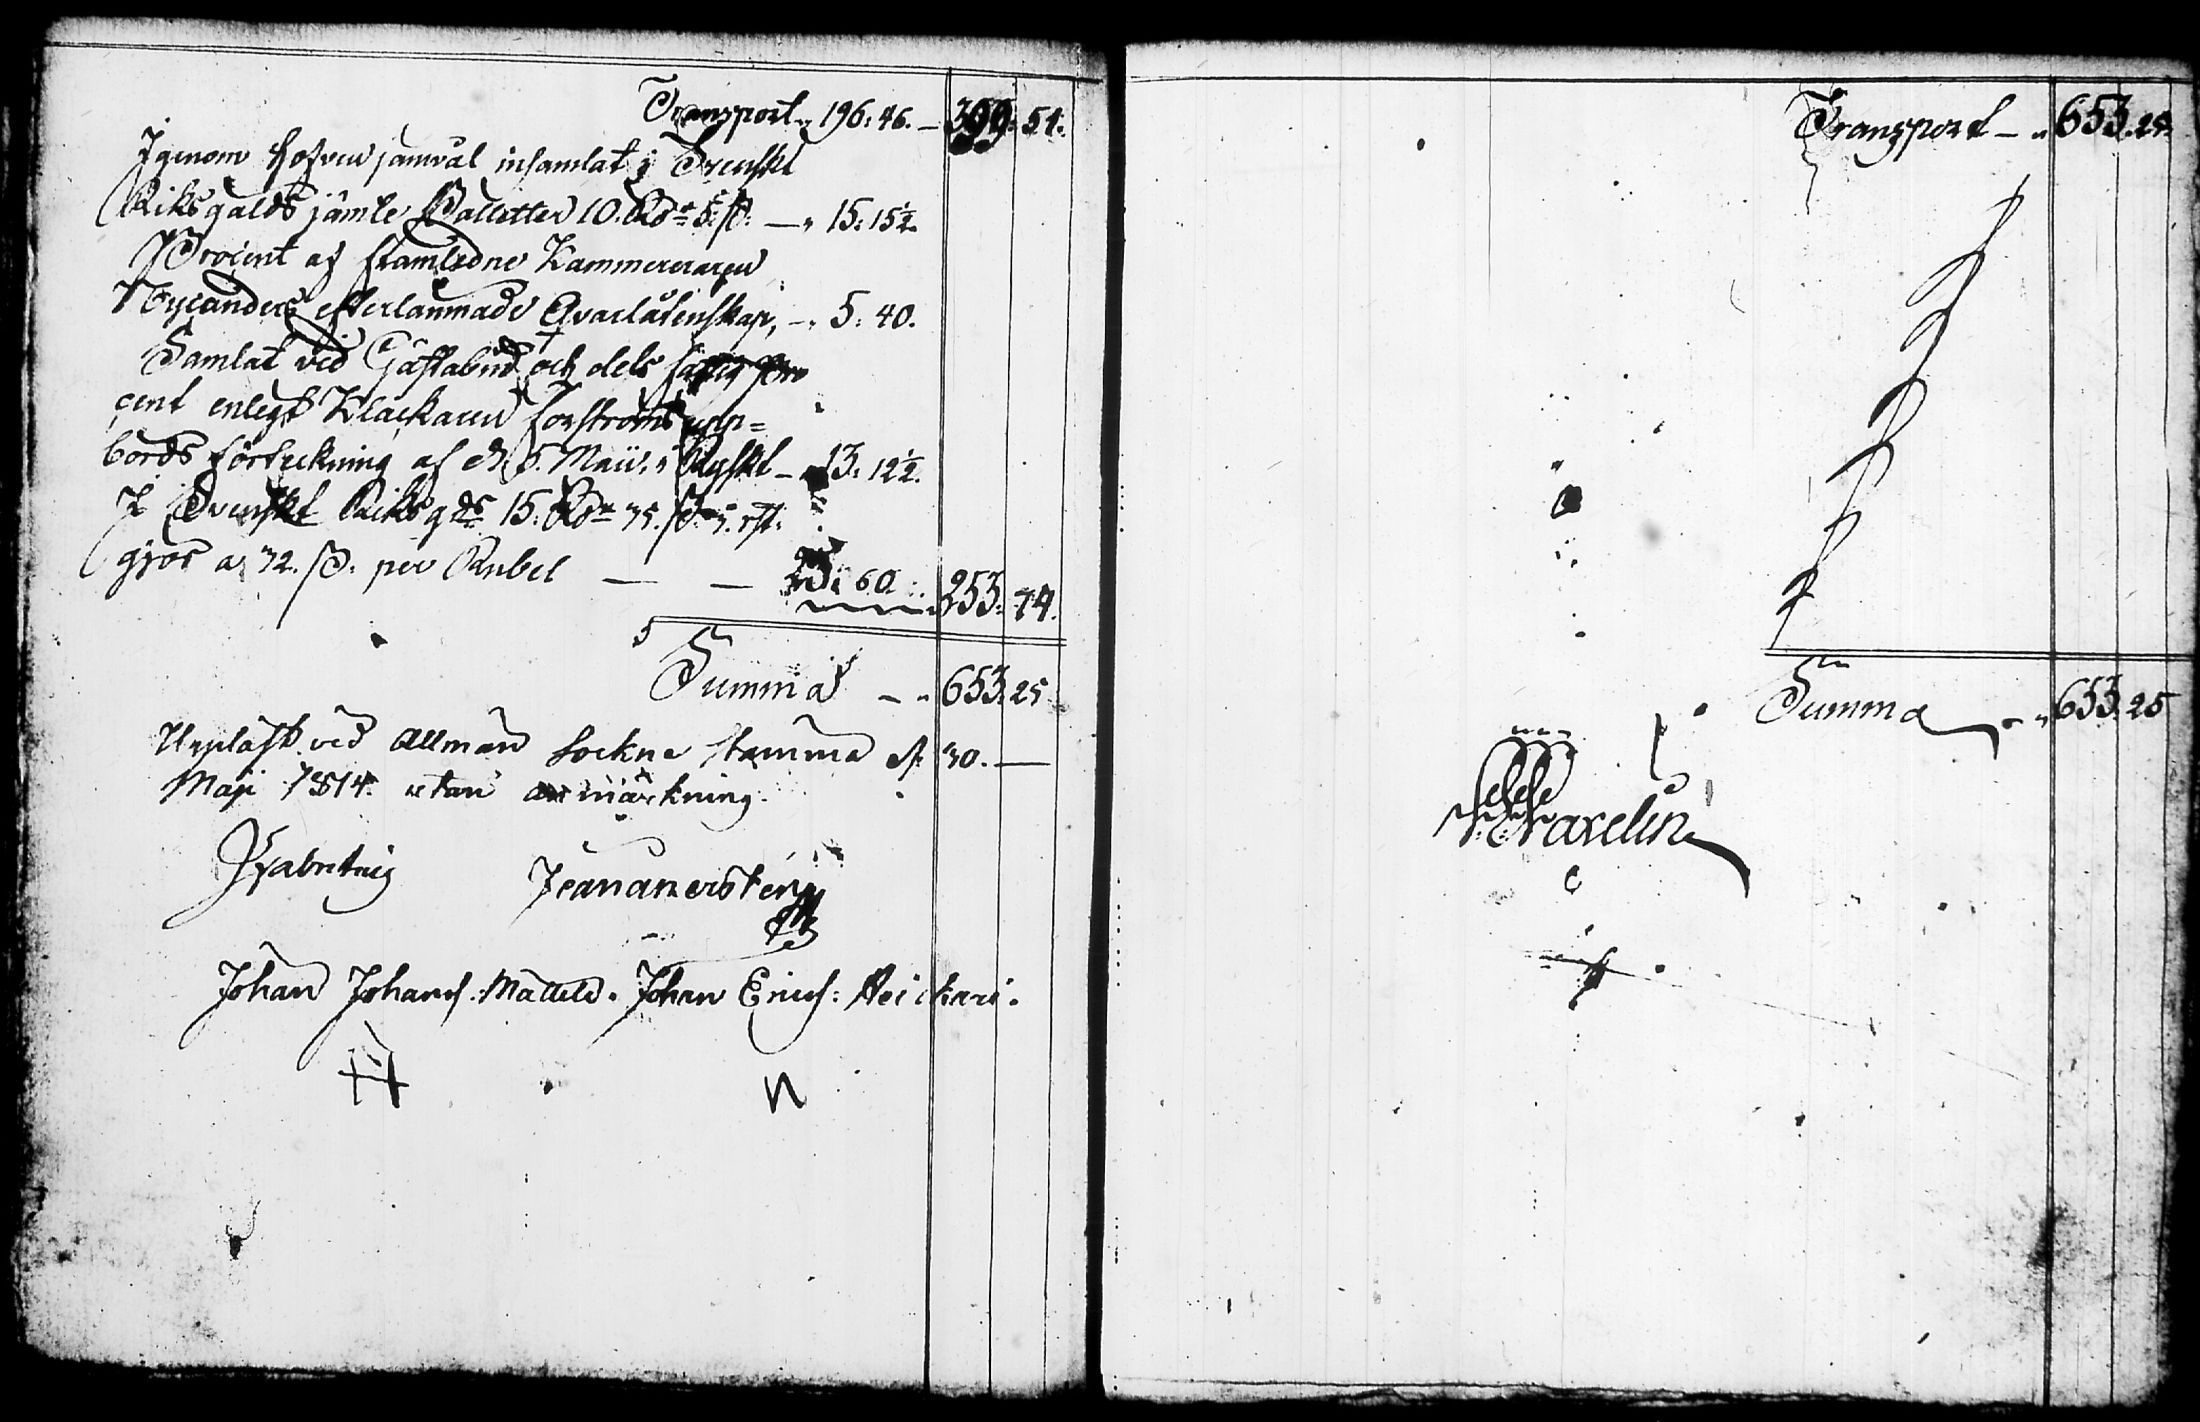 Transport „ 196: 46. — 399: 51.
Igenom Hofven jämväl insamlat i Svenskt
Riksgälds jämte Polletter 10. Rdr 5. ß. — „ 15: 15½.
Procent af framledne Kammereraren
Nylanders efterlämnade Qvarlåtenskap, — „ 5: 40.
Samlat vid Gästabud och dels
cent enligt Klackaren Forströms upp=
börds förteckning af d. 5. Maii, i Ryskt — 13: 12½.
I Svenskt Riksgds 15. Rdr 35. ß 5. rst.
giör a 72. ß. per Rubel — — 60 253: 74.
Summa — „ 653: 25
Uppläst vid Allmän Sockne stämma d. 30. —
Maji 1814. utan anmärkning.
Johan Johans. Mattela. Johan Erics: Heickari.
N
Transport — „ 653. 25.
Summa — „ 653. 25